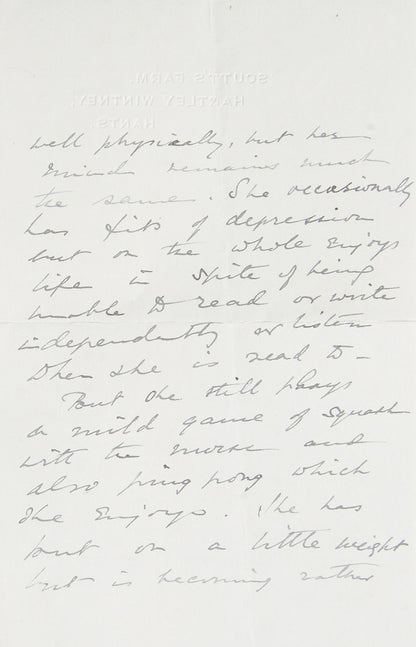 SCUTT'S FARM,
HARTLEY WINTNEY,
HANTS.
well physically, but her
mind remains much
the same. She occasionally
has fits of depression
but on the whole enjoys
life in spite of being
unable to read or write
independently or listen
when she is read to –
But she still plays
a mild game of squash
with the nurse and
also ping pong which
she enjoys. She has
put on a little weight
but is becoming rather